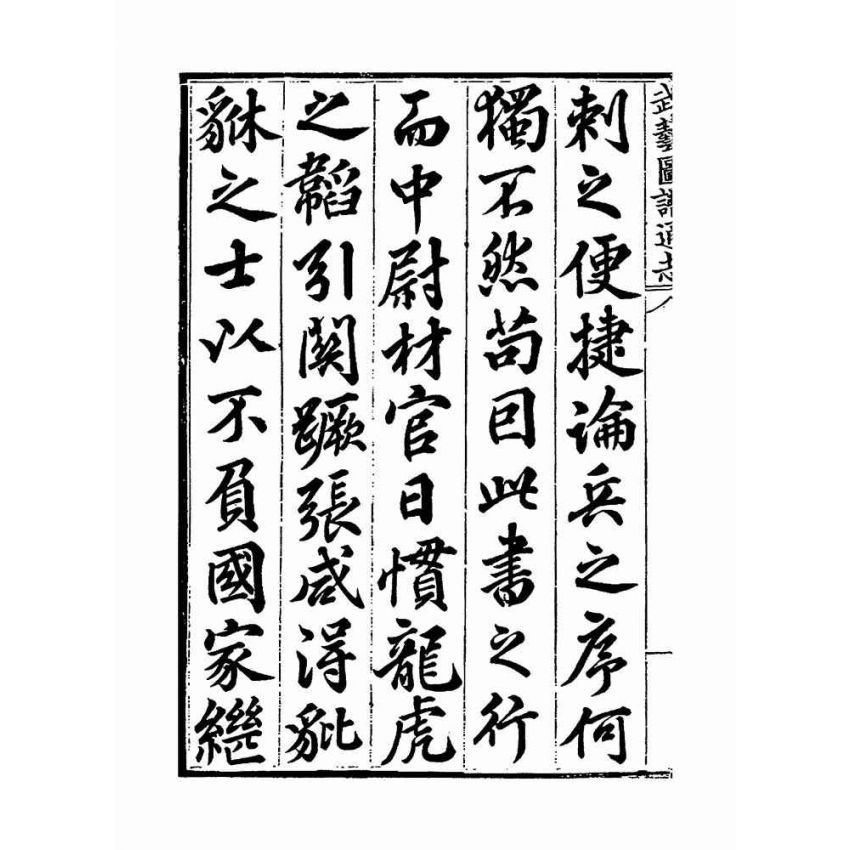 武藝圖譜通志
刺之便捷論兵之序何
獨不然苟因此書之行
而中尉材官日慣龍虎
之韜引關蹶張咸得豼
貅之士以不負國家繼